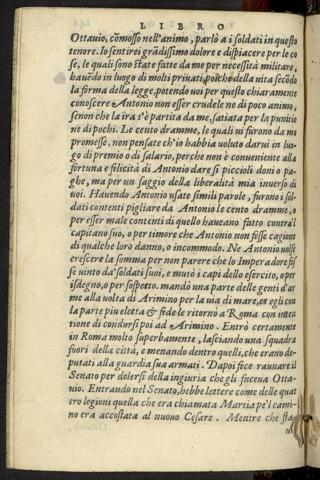 LIBRO
Ottauio, cõmosso nell'animo, parlò a i soldati in questo
tenore. Io sentirei grãdissimo dolore e dispiacere per le co
se, le quali sono state fatte da me per necessità militare,
hauẽdo in luogo di molti priuati, poiche della uita secõdo
la forma della legge, potendo uoi per questo chiaramente
conoscere Antonio non esser crudele ne di poco animo,
senon che la ira s'è partita da me, satiata per la punitio
ne di pochi. Le cento dramme, le quali ui furono da me
promesse, non pensate ch'io habbia uoluto darui in luo-
go di premio o di salario, perche non è conueniente alla
fortuna e filicità di Antonio dare si piccioli doni o pa-
ghe, ma per un saggio della liberalità mia inuerso di
uoi. Hauendo Antonio usate simili parole, furono i sol-
dati contenti pigliare da Antonio le cento dramme, o
per esser male contenti di quello haueano fatto contra'l
capitano suo, o per timore che Antonio non fosse cagione
di qualche loro danno, o incommodo. Ne Antonio uolse
crescere la somma per non parere che lo Imperadore fos
se uinto da' soldati suoi, e mutò i capi dello esercito, o per
isdegno, o per sospetto. mandò una parte delle genti d'ar
me alla uolta di Arimino per la uia di mare, et egli con
la parte piu eletta & fidele ritornò a Roma con inten
tione di condursi poi ad Arimino. Entrò certamente
in Roma molto superbamente, lasciando una squadra
fuori della città, e menando dentro quelli, che erano de-
putati alla guardia sua armati. Dapoi fece raunare il
Senato per dolersi della ingiuria che gli faceua Otta-
uio. Entrando nel Senato, hebbe lettere come delle quat
tro legioni quella che era chiamata Martia pe'l cami-
no era accostata al nuouo Cesare. Mentre che sta-